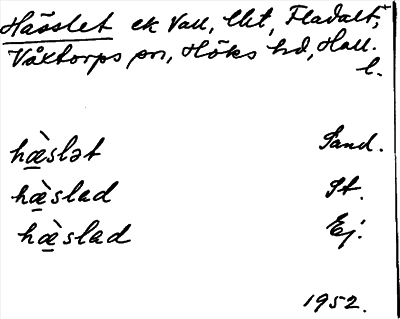 Hässlet ek Vall, Utt, Fladalt,
Våxtorps sn, Höks hd, Hall.
l.
hæ̀slət Sand.
hæ̀slad St.
hæ̀slad Ej.
1952.